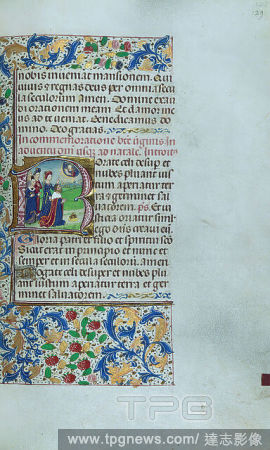 29
nobis inveniat mansionem. Qui
vivis et regnas deus per omnia secu
la seculorum amen. Domine exau
di orationem meam. Et clamor me
us ad te veniat. Benedicamus do
mino. Deo gratias.
In commemoratione bte virginis in
adventu dni usque ad natale. Introit9
Rorate celi desuper et
nubes pluant ius
tum aperiatur ter
ra et germinet sal
vatorem. ps. Et ius
titia oriatur simul
ego dns creavi eu
Gloria patri et filio et spiritui sco
Sicut erat in principio et nunc et
semper et in secula seculorum. Amen
Rorate celi desuper et nubes plu
ant iustum aperiatur terra et ger
minet salvatorem.
TPG
www.tpgnews.com/ 達志影像